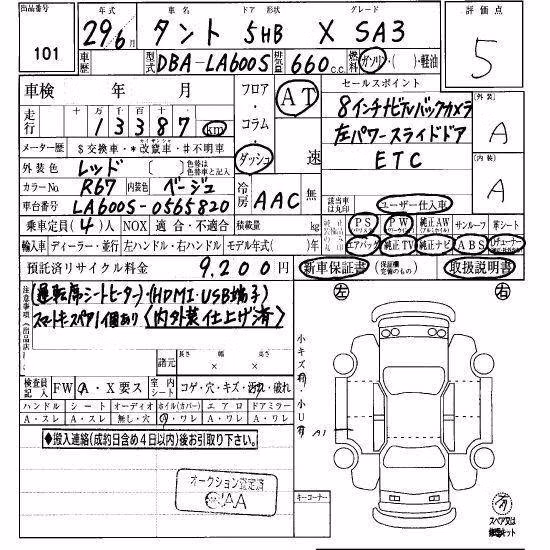 出品番号 年式 車名 ドア 形状 グレード 評価点
101 29年6月 タント 5HB X SA3 5
車歴 型式 DBA-LA600S 排気量 660cc. 燃料 ガソリン・( )・軽油
車検 年 月 フロア・コラム・ダッシュ AT 速 セールスポイント
走行 十万千百十 13387 km 8インチナビフルバックカメラ 外装 A
メーター歴 $交換車・*改竄車・#不明車 左パワースライドドア
外装色 レッド ( ) 色替は色替車と記入 ETC 内装 A
カラーNo. R67 内装色 ベージュ 冷房 AAC 無 該当車は丸印 ユーザー仕入車
車台番号 LA600S-0565820
乗車定員 (4)人 NOX 適合・不適合 積載量 kg PS PW 純正AW サンルーフ 革シート
輸入車 ディーラー・並行 左ハンドル・右ハンドル モデル年式( )年 エアバッグ 純正TV 純正ナビ ABS
預託済リサイクル料金 9,200円 新車保証書 (保証書 記載のもの) 取扱説明書
注意事項(出品店) (運転席シートヒーター)・(HDMI・USB端子) 左 右
スマートキースペア1個あり (内外装仕上げ済)
諸元 長さ 幅 高さ cm 小キズ有・小U有
検査員記入 FW A・X要ス 室内シート コゲ・穴・キズ・汚れ・破れ
ハンドル シート オーディオ ホイル(カバー) エアロ ドアミラー A1
A・スレ A・スレ 無し・穴 ・ワレ A・ワレ A・ワレ
◆搬入連絡(成約日含め4日以内)後お引取り下さい。
オークション査定済
JAA
キーコーナー
スペア又は
修理キット